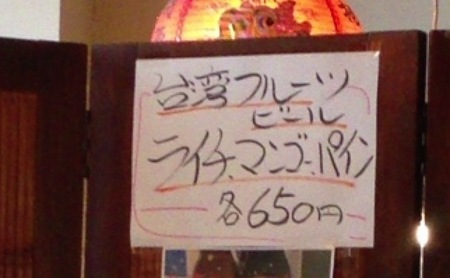 台湾フルーツ
ビール
ライチ、マンゴー、パイン
各650円